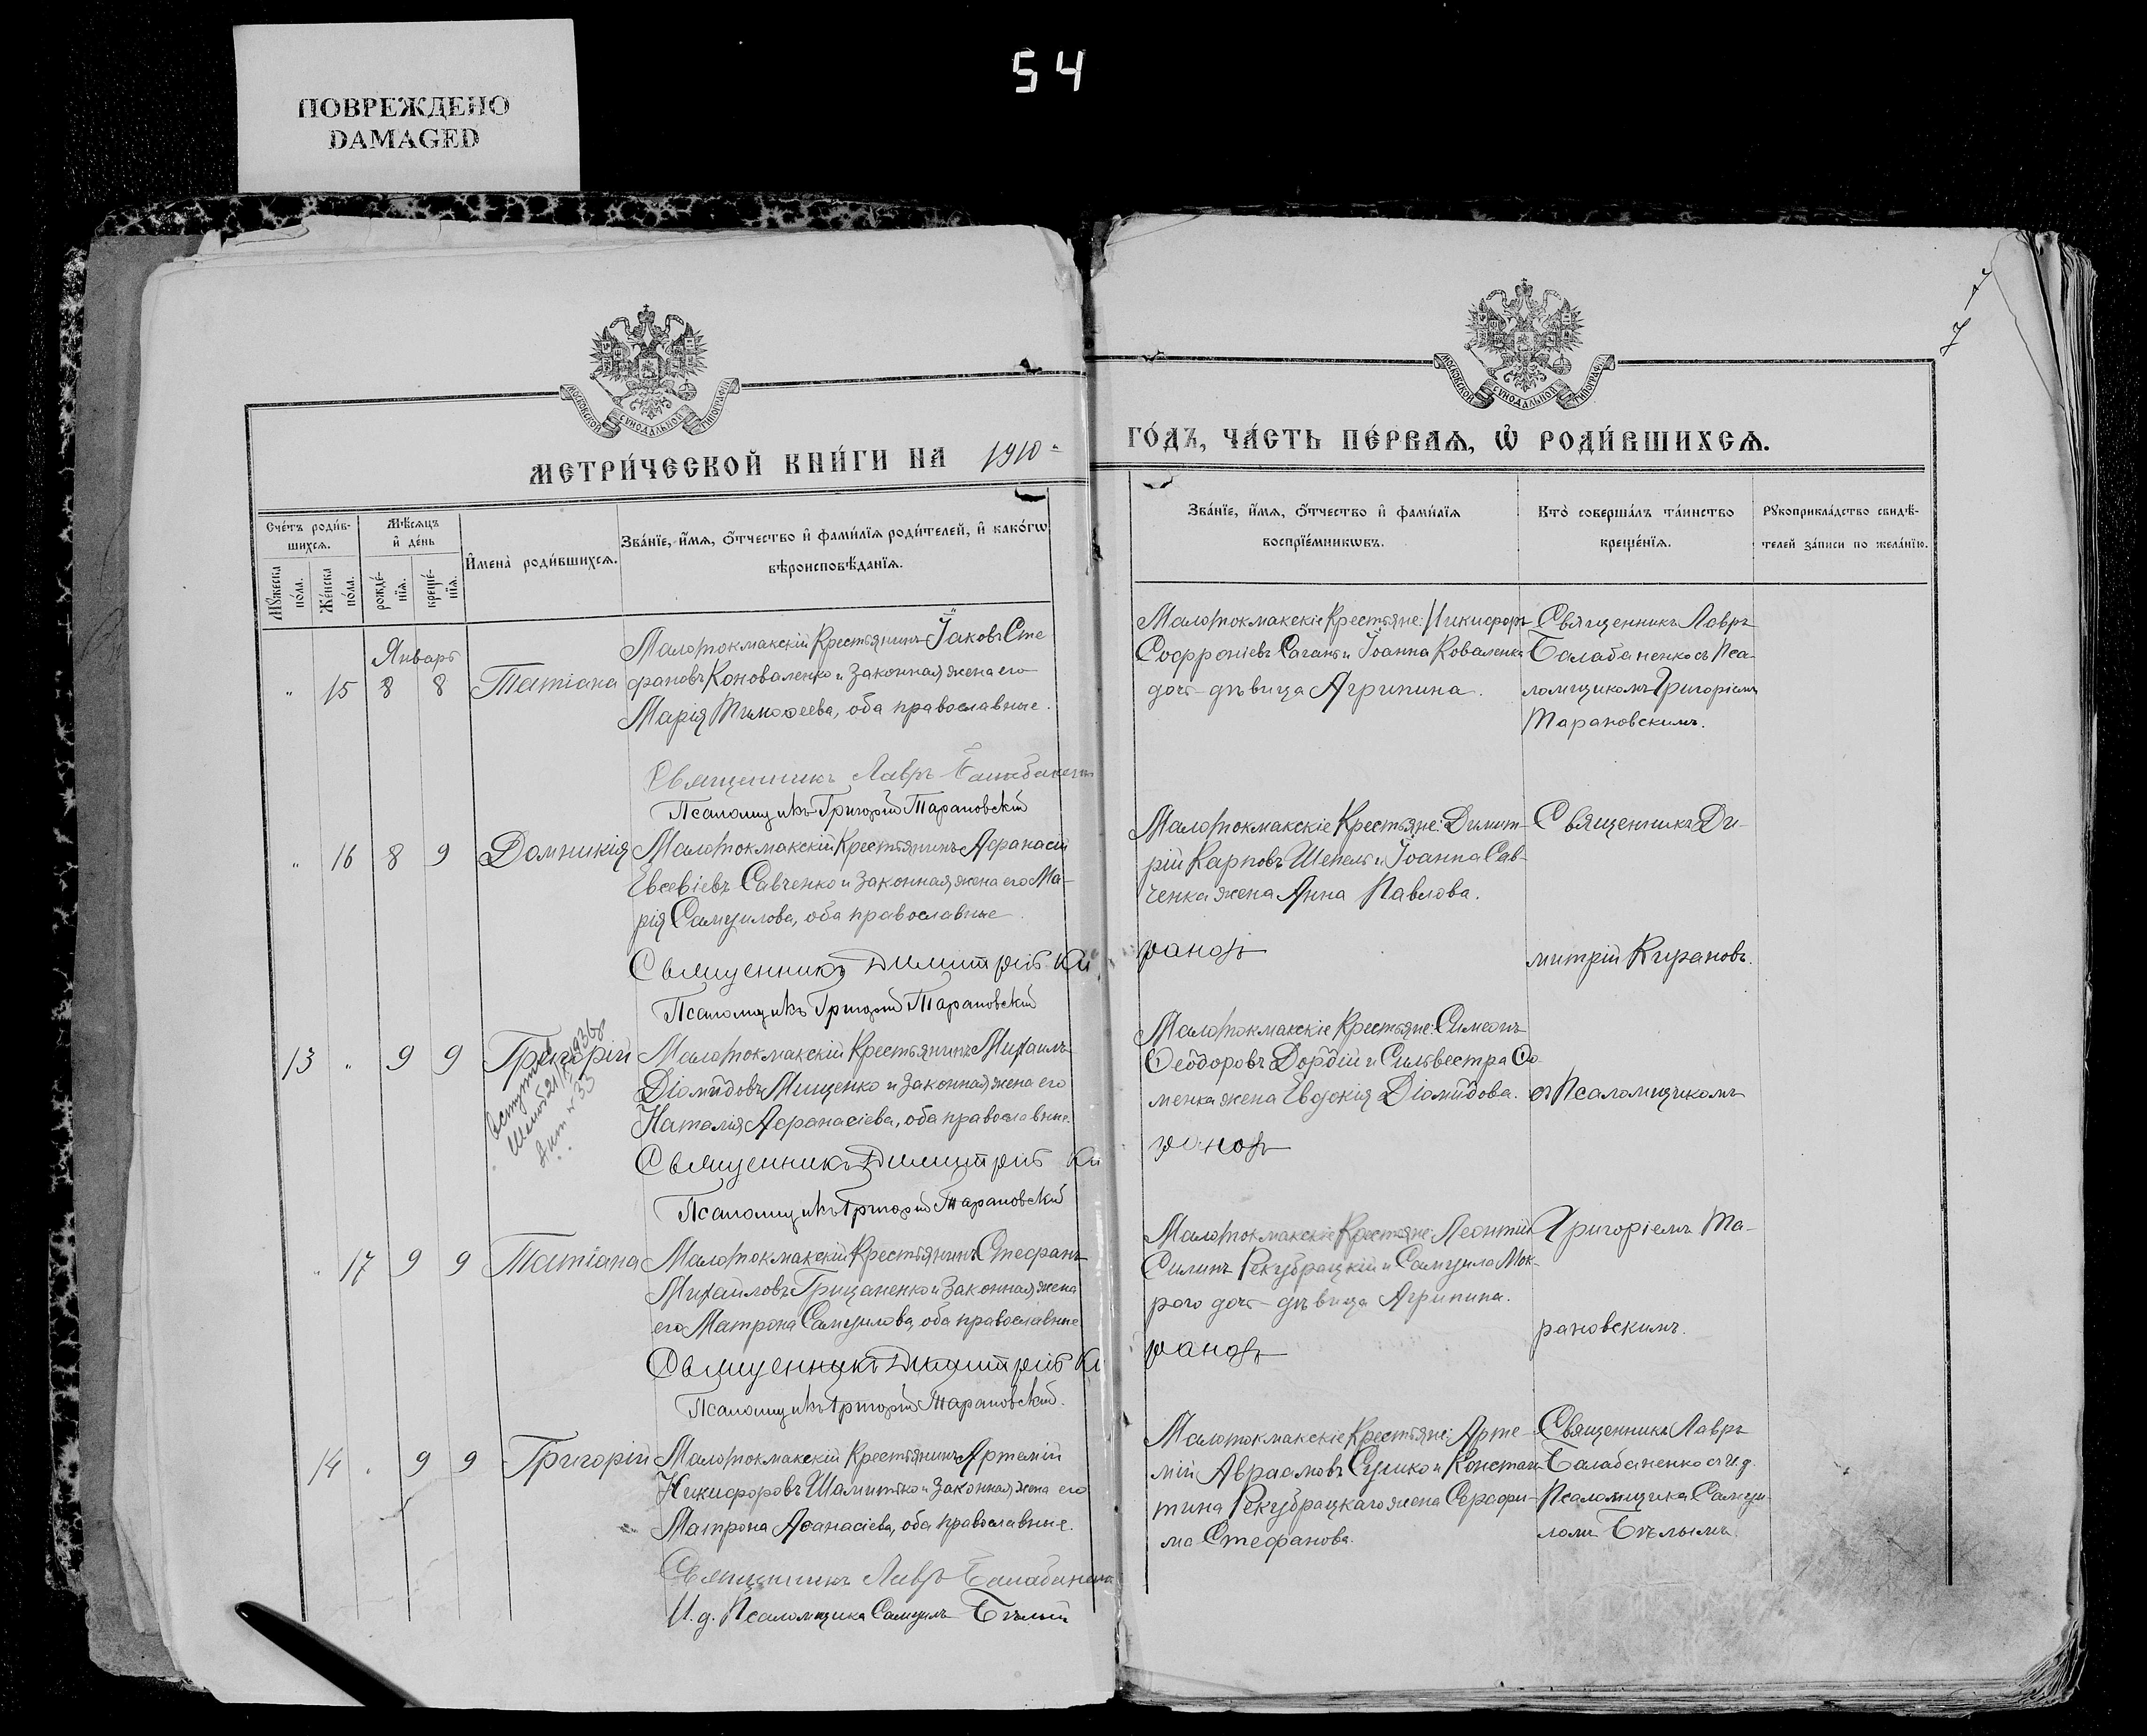 ПОВРЕЖДЕНО
DAMAGED
54
МОСКОВСКОЙ СѴНОДАЛЬНОЙ ТИПОГРАФІИ
МЕТРИ́ЧЕСКОЙ КНИ́ГИ НА 1910
Сче́тъ роди́в-
шихсѧ.
Мѣ́сѧцъ
и҆ де́нь
Мꙋ́жеска
по́ла.
Же́нска
по́ла.
рожде́-
нїѧ.
креще́-
нїѧ.
И҆мена̀ роди́вшихсѧ.
Зва́нїе, и҆́мѧ, ѻ҆́тчество и҆ фами́лїѧ роди́телей, и҆ како́гѡ
вѣроисповѣ́данїѧ.
Январь
" 15 8 8 Татіана
Малотокмакскій Крестьянинъ Іаковъ Сте
фановъ Коноваленко и законная жена его
Марія Тимоѳеева, оба православные.
Священникъ Лавръ Балабаненко
Псаломщикъ Григорій Тарановскій
" 16 8 9 Домникія
Малотокмакскій Крестьянинъ Афанасій
Евсевіевъ Савченко и законная жена его Ма-
рія Самуилова, оба православные.
Священникъ Димитрій Ки
Псаломщикъ Григорій Тарановскій
13 " 9 9 Григорій
Малотокмакскій Крестьянинъ Михаилъ
Діомидовъ Мищенко и законная жена его
Наталія Афанасіева, оба православные.
Священникъ Димитрій Ки
Псаломщикъ Григорій Тарановскій
" 17 9 9 Татіана
Малотокмакскій Крестьянинъ Стефанъ
Михаиловъ Грицаненко и законная жена
его Матрона Самуилова, оба православные
Священникъ Димитрій Ки
Псаломщикъ Григорій Тарановскій.
14 " 9 9 Григорій
Малотокмакскій Крестьянинъ Артемій
Никифоровъ Шамитько и законная жена его
Матрона Аѳанасіева, оба православные.
Священникъ Лавръ Балабаненко
И. д. Псаломщика Самуилъ Бѣлый
МОСКОВСКОЙ СѴНОДАЛЬНОЙ ТИПОГРАФІИ
ГО́ДЪ, ЧА́СТЬ ПЕ́РВАѦ, Ѽ РОДИ́ВШИХСѦ.
Зва́нїе, и҆́мѧ, ѻ҆́тчество и҆ фами́лїѧ
воспрїе́мникѡвъ.
Кто̀ соверша́лъ та́инство
креще́нїѧ.
Рꙋкоприкла́дство свидѣ́-
телей за́писи по жела́нїю.
Малотокмакскіе Крестьяне: Никифоръ
Софроніевъ Сагань и Іоанна Коваленка
дочь-дѣвица Агрипина.
Священникъ Лавръ
Балабаненко съ Пса-
ломщикомъ Григоріемъ
Тарановскимъ.
Малотокмакскіе Крестьяне: Димит-
рій Карповъ Шепель и Іоанна Сав-
ченка жена Анна Павлова.
рановъ
Священникъ Ди-
митрій Кирановъ.
Малотокмакскіе Крестьяне: Симеонъ
Ѳеодоровъ Дордій и Сильвестра Ѳо-
менка жена Евдокія Діомидова.
рановъ
съ Псаломщикомъ
Малотокмакскіе Крестьяне: Леонтій
Силинъ Рекубрацкій и Самуила Мок-
раго дочь-дѣвица Агрипина.
рановъ
Григоріемъ Та-
рановскимъ.
Малотокмакскіе Крестьяне: Арте-
мій Авраамовъ Сушко и Констан-
тина Рекубрацкаго жена Серафи-
ма Стефанова.
Священникъ Лавръ
Балабаненко съ И. д.
Псаломщика Самуи-
ломъ Бѣлымъ.